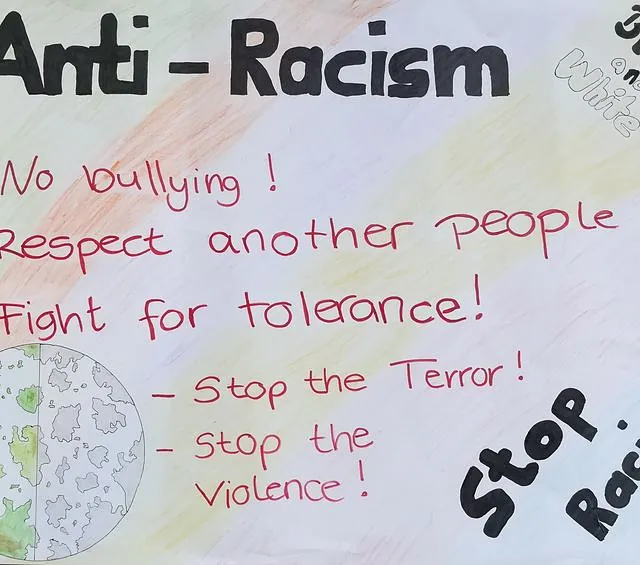 Anti-Racism
and
White
No bullying!
Respect another people
Fight for tolerance!
- Stop the Terror!
- Stop the
Violence!
Stop